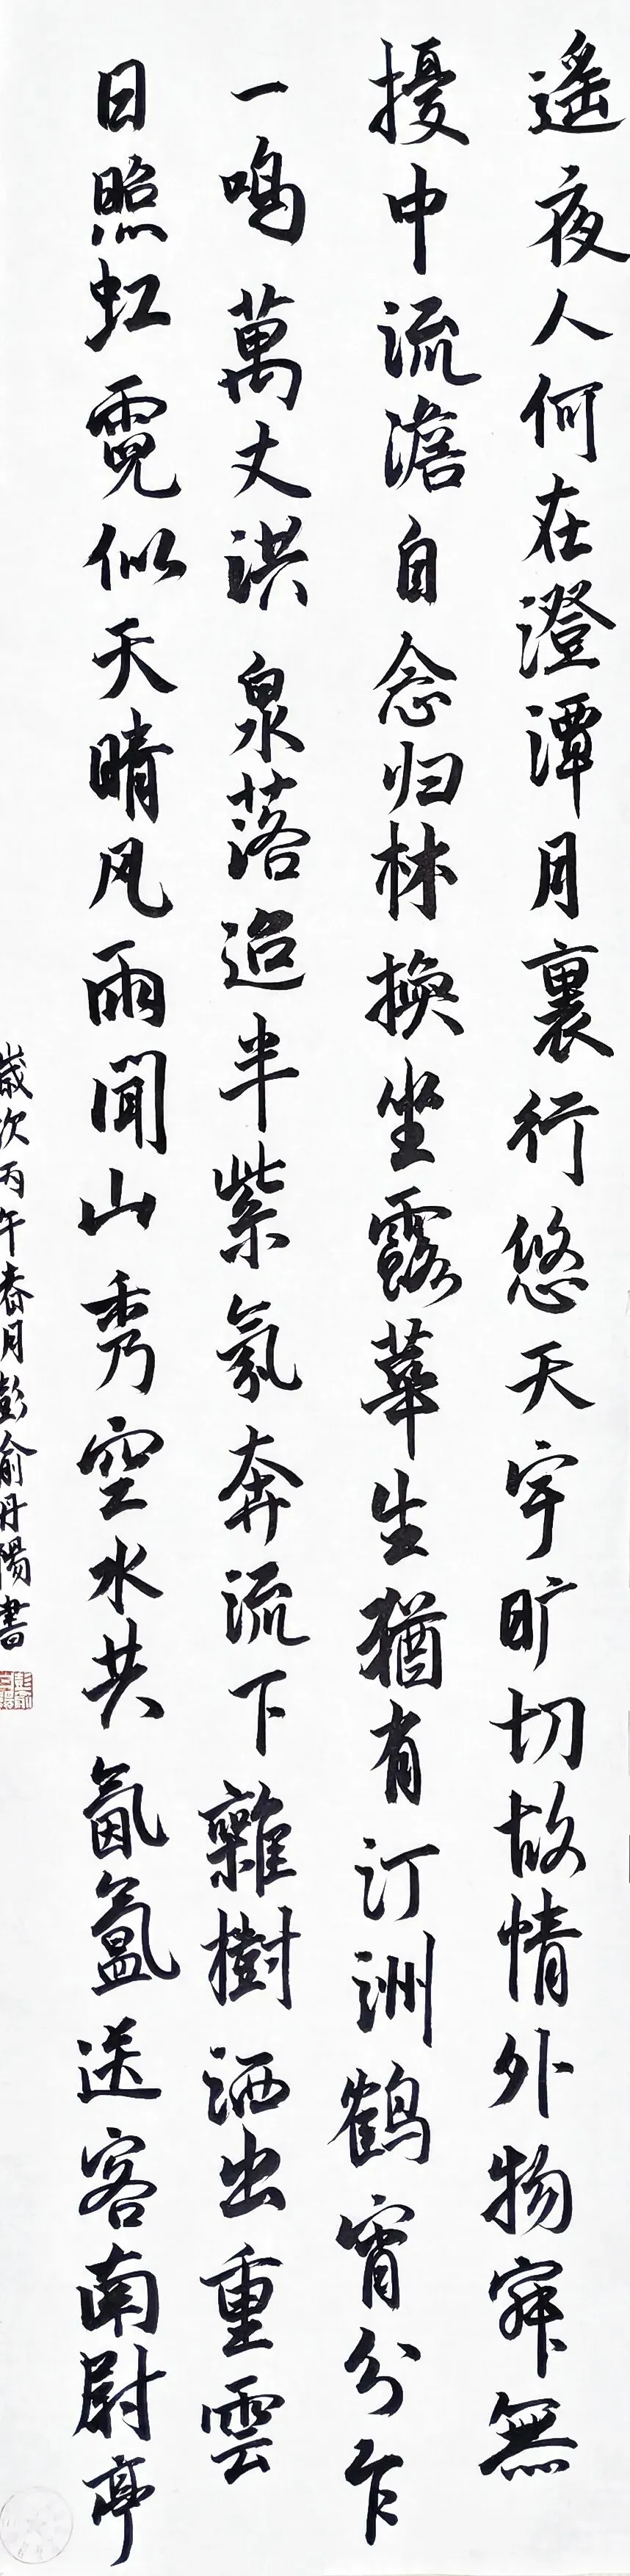 遙夜人何在澄潭月裏行悠天宇旷切故情外物寂無
擾中流澹自念归林換坐露華生猶有汀洲鶴宵分乍
一鳴萬丈洪泉落迢半紫氛奔流下雜樹洒出重雲
日照虹霓似天晴风雨聞山秀空水共氤氳送客南尉亭
歲次丙午春月彭俞丹陽書